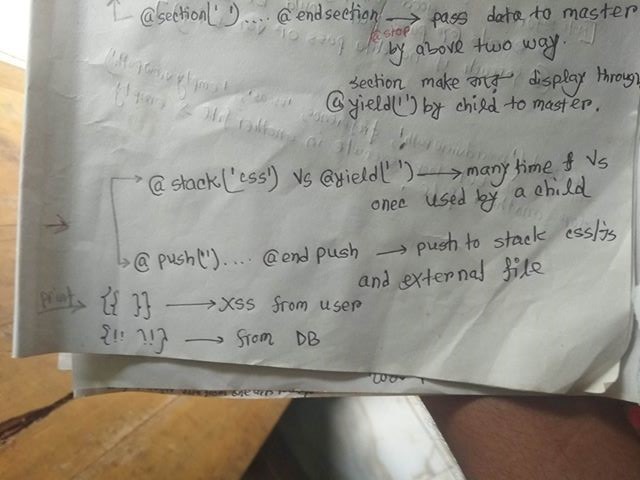 @section(' ').... @endsection → pass data to master
@stop
by above two way.
section make করে display through
@yield('') by child to master.
@stack('css') Vs @yield(' ') → many time & Vs
once used by a child
@push('').... @endpush → push to stack css/js
and external file
print → {{ }} → XSS from user
{!! !!} → from DB